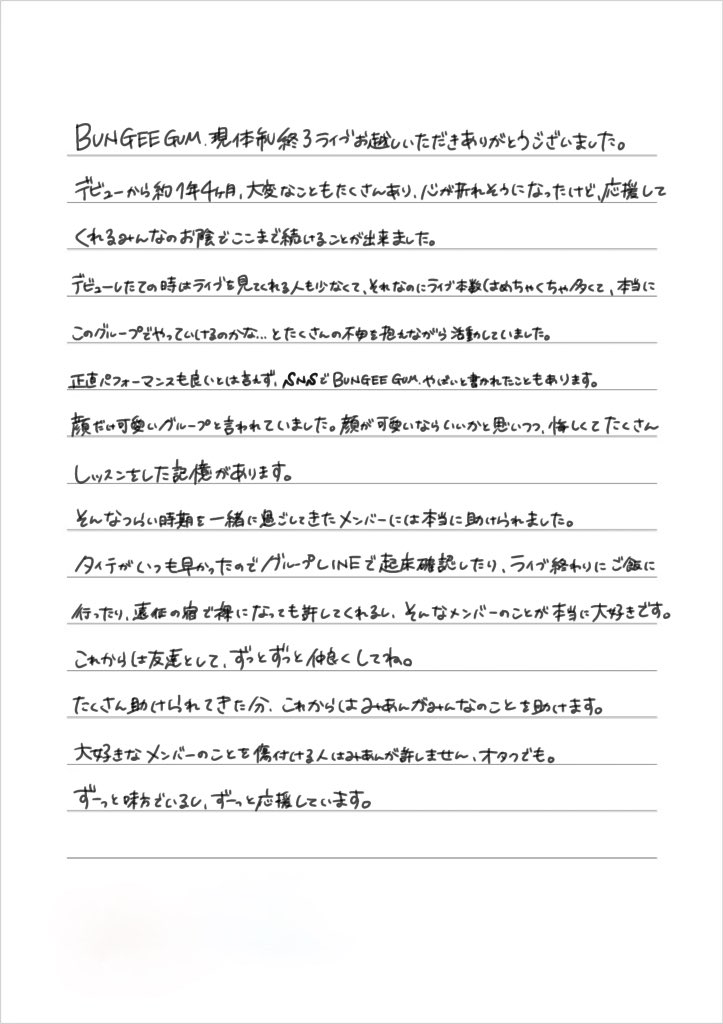 BUNGEE GUM.現体制終了ライブお越しいただきありがとうございました。
デビューから約1年4ヶ月、大変なこともたくさんあり、心が折れそうになったけど、応援して
くれるみんなのお陰でここまで続けることが出来ました。
デビューしたての時はライブを見てくれる人も少なくて、それなのにライブ本数はめちゃくちゃ多くて、本当に
このグループでやっていけるのかな...とたくさんの不安を抱えながら活動していました。
正直パフォーマンスも良いとは言えず、SNSでBUNGEE GUM.やばいと書かれたこともあります。
顔だけ可愛いグループと言われていました。顔が可愛いならいいかと思いつつ、悔しくてたくさん
レッスンをした記憶があります。
そんなつらい時期を一緒に過ごしてきたメンバーには本当に助けられました。
タイテがいつも早かったのでグループLINEで起床確認したり、ライブ終わりにご飯に
行ったり、遠征の宿で裸になっても許してくれるし、そんなメンバーのことが本当に大好きです。
これからは友達として、ずっとずっと仲良くしてね。
たくさん助けられてきた分、これからはみあんがみんなのことを助けます。
大好きなメンバーのことを傷付ける人はみあんが許しません、オタクでも。
ずーっと味方でいるし、ずーっと応援しています。